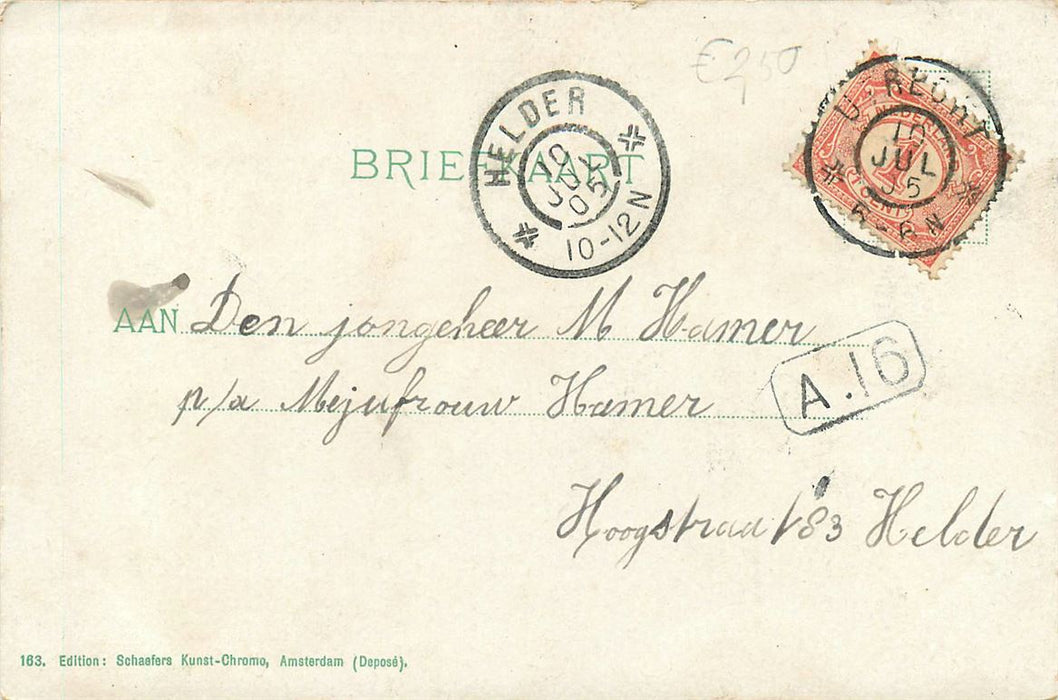 € 2,50
HELDER
10 JUL 05
10-12N
UTRECHT
10 JUL 05
NEDERLAND
1
CENT
BRIEFKAART
AAN Den jongeheer M Hamer
p/a Mejufrouw Hamer
A.16
Hoogstraat 83 Helder
163. Edition: Schaefers Kunst-Chromo, Amsterdam (Deposé).